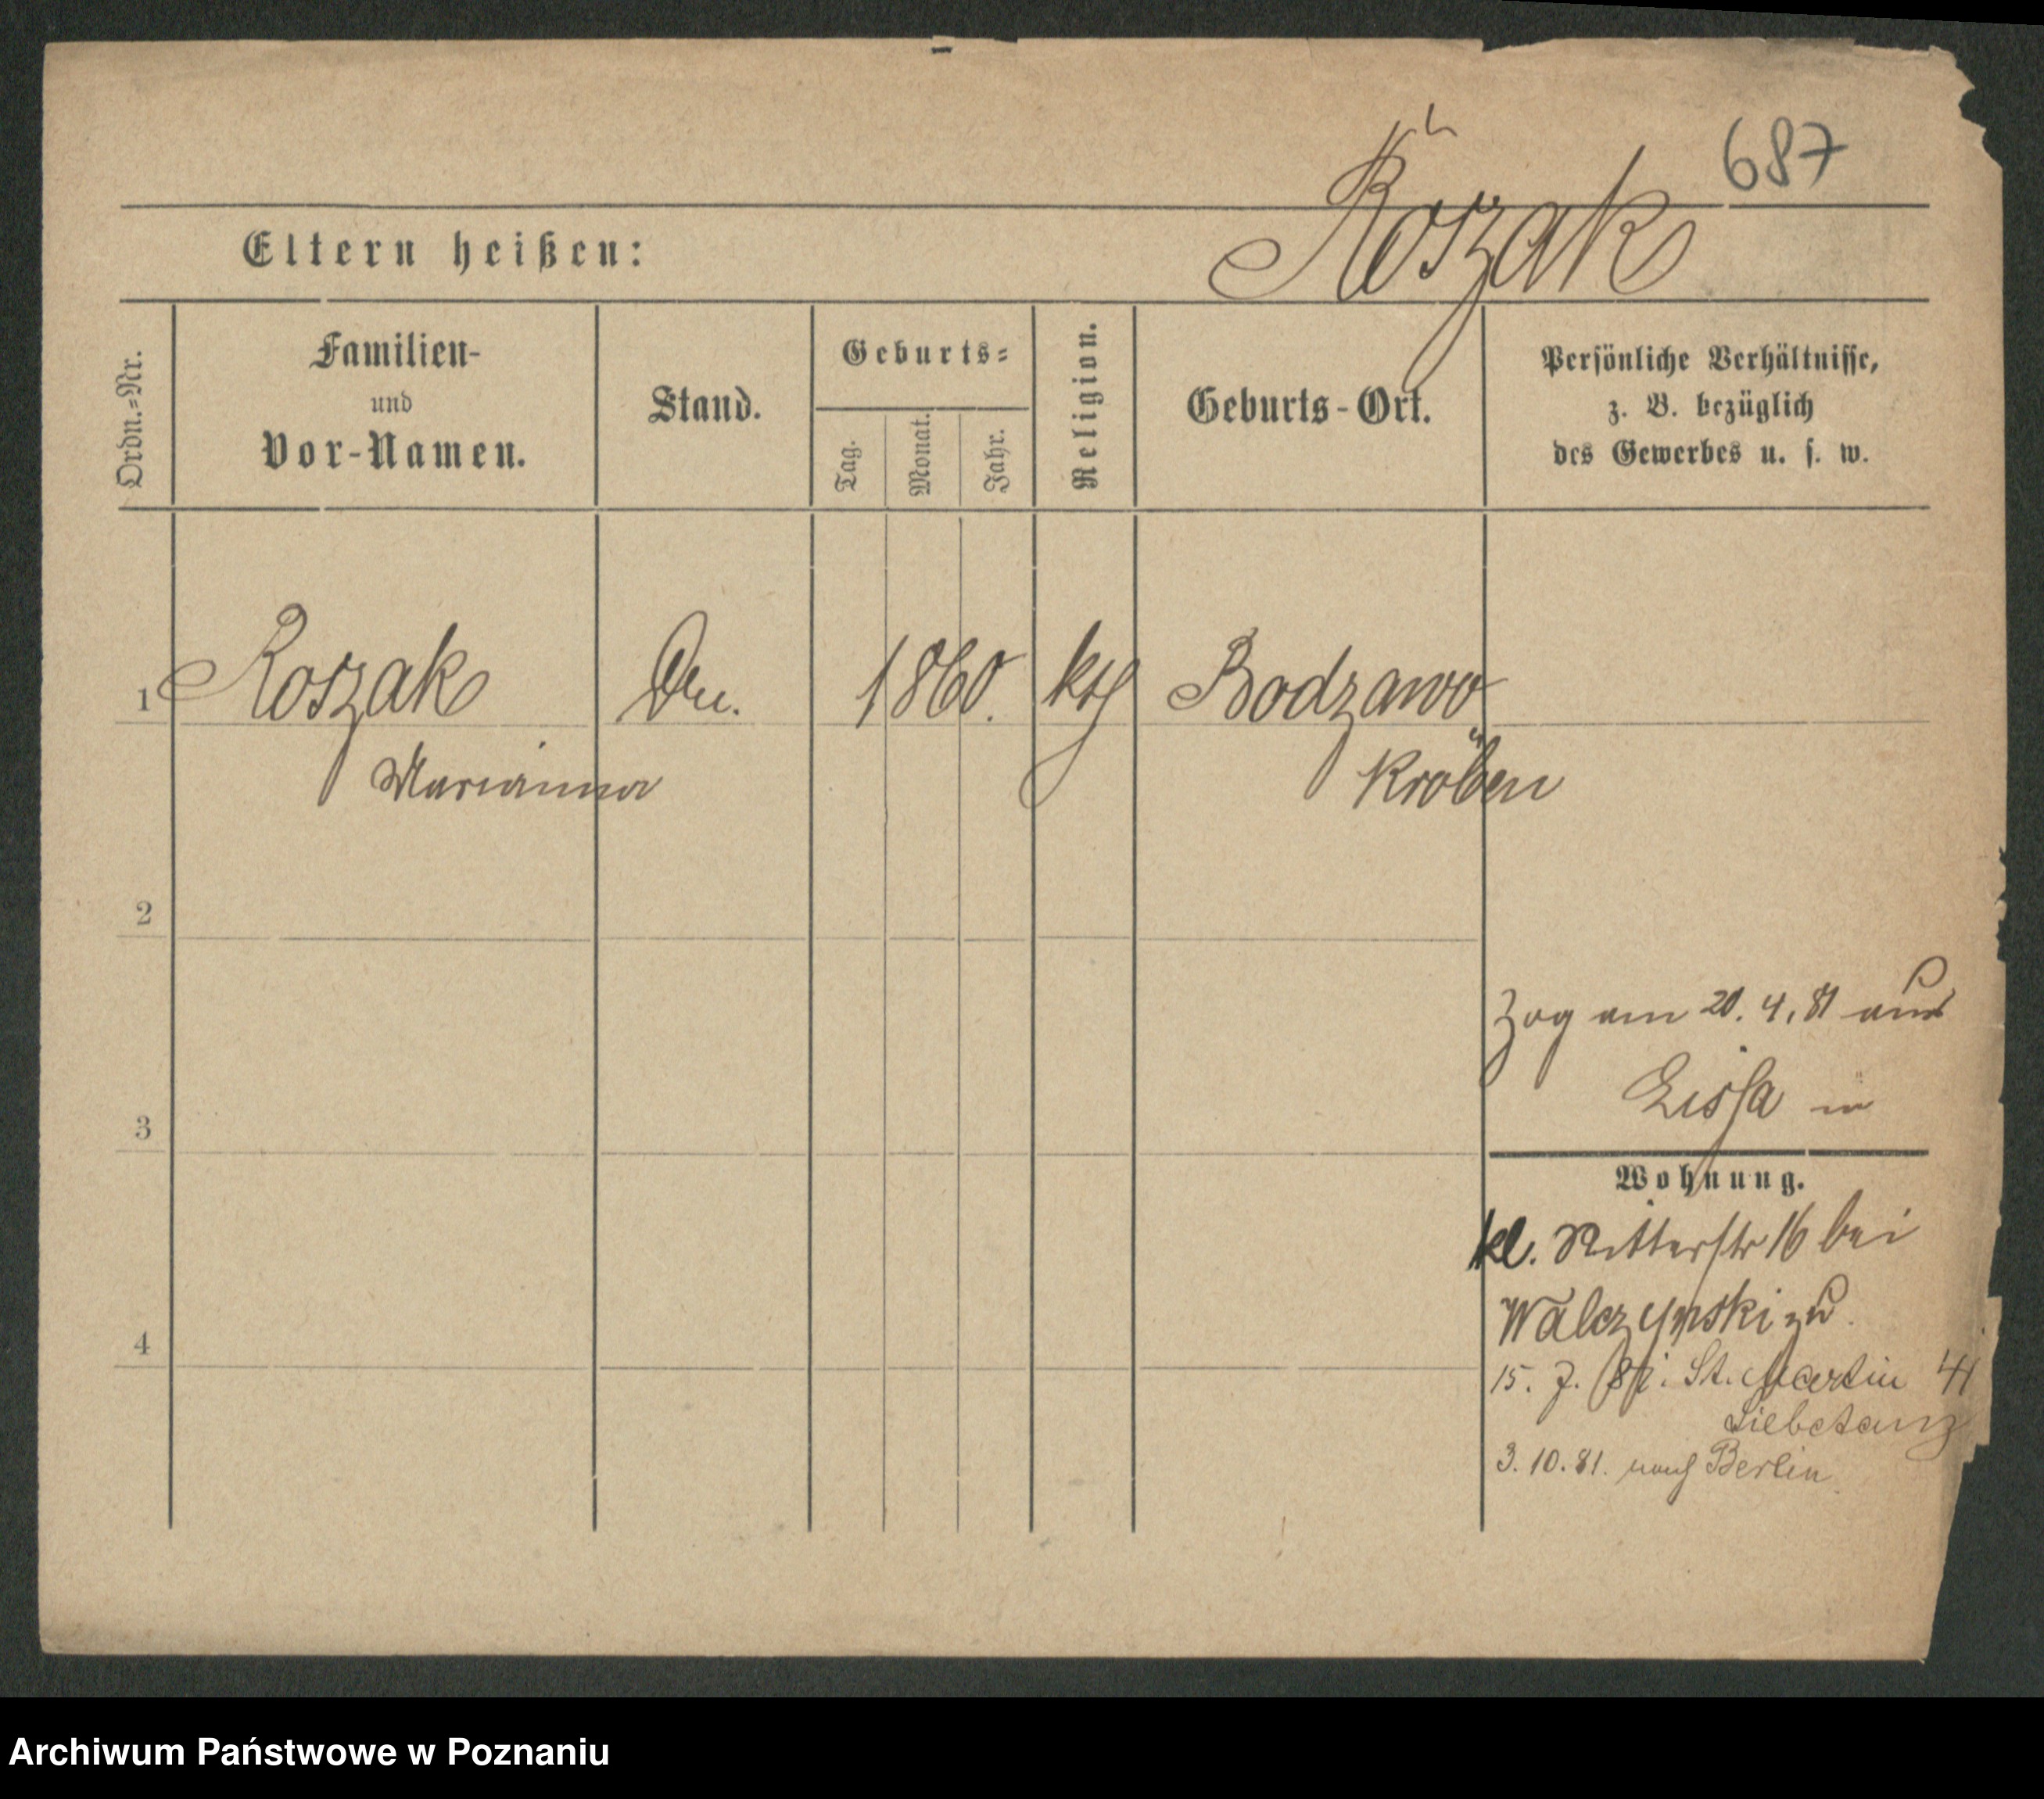 687
Roszak
Eltern heißen:
Ordn.=Nr.
Familien-
und
Vor-Namen.
Stand.
Geburts=
Tag.
Monat.
Jahr.
Religion.
Geburts-Ort.
Persönliche Verhältnisse,
z. B. bezüglich
des Gewerbes u. s. w.
1 Roszak 1860. kth Bodzawo
Marianna Kröben
2
3
4
Zog am 20. 4. 81 aus
Lissa in
Wohnung.
kl. Ritterstr 16 bei
Walczynski zu.
15. 7. 81. St. Martin 41
Liebetanz
3. 10. 81. nach Berlin
Archiwum Państwowe w Poznaniu